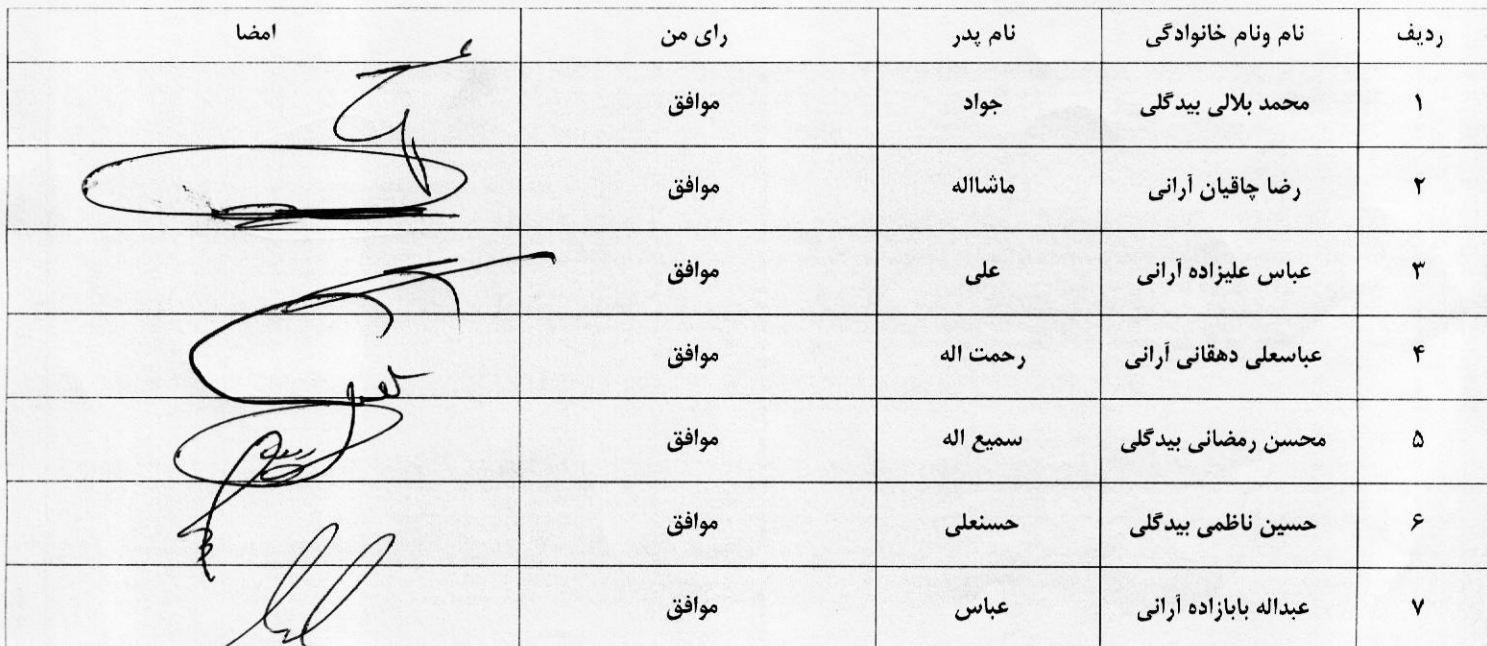 ردیف نام ونام خانوادگی نام پدر رای من امضا
۱ محمد بلالی بیدگلی جواد موافق
۲ رضا چاقیان آرانی ماشااله موافق
۳ عباس علیزاده آرانی علی موافق
۴ عباسعلی دهقانی آرانی رحمت اله موافق
۵ محسن رمضانی بیدگلی سمیع اله موافق
۶ حسین ناظمی بیدگلی حسنعلی موافق
۷ عبداله بابازاده آرانی عباس موافق